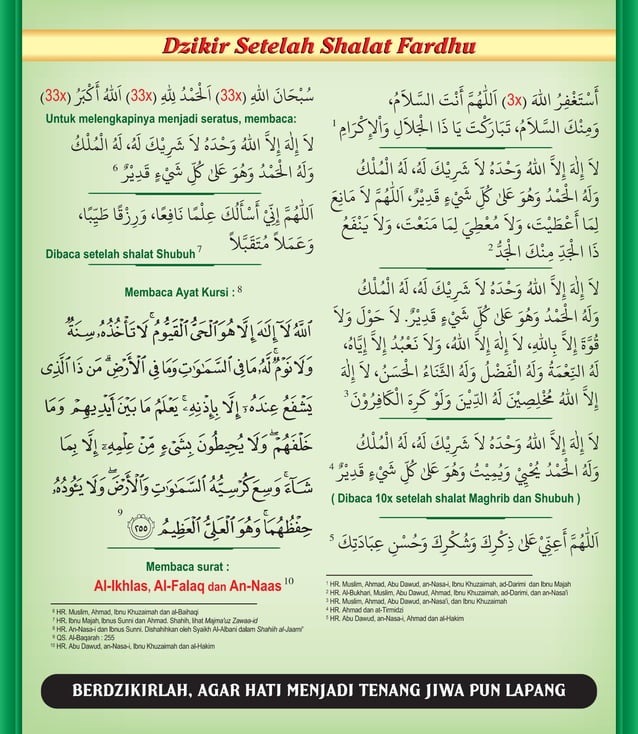 Dzikir Setelah Shalat Fardhu
أَسْتَغْفِرُ اللهَ (3x) اَللَّهُمَّ أَنْتَ السَّلاَمُ،
وَمِنْكَ السَّلاَمُ، تَبَارَكْتَ يَا ذَا الْجَلاَلِ وَاْلإِكْرَامِ 1
لاَ إِلَهَ إِلاَّ اللهُ وَحْدَهُ لاَ شَرِيْكَ لَهُ، لَهُ الْمُلْكُ
وَلَهُ الْحَمْدُ وَهُوَ عَلَى كُلِّ شَيْءٍ قَدِيْرٌ، اَللَّهُمَّ لاَ مَانِعَ
لِمَا أَعْطَيْتَ، وَلاَ مُعْطِيَ لِمَا مَنَعْتَ، وَلاَ يَنْفَعُ
ذَا الْجَدِّ مِنْكَ الْجَدُّ 2
لاَ إِلَهَ إِلاَّ اللهُ وَحْدَهُ لاَ شَرِيْكَ لَهُ، لَهُ الْمُلْكُ
وَلَهُ الْحَمْدُ وَهُوَ عَلَى كُلِّ شَيْءٍ قَدِيْرٌ. لاَ حَوْلَ وَلاَ
قُوَّةَ إِلاَّ بِاللهِ، لاَ إِلَهَ إِلاَّ اللهُ، وَلاَ نَعْبُدُ إِلاَّ إِيَّاهُ،
لَهُ النِّعْمَةُ وَلَهُ الْفَضْلُ وَلَهُ الثَّنَاءُ الْحَسَنُ، لاَ إِلَهَ
إِلاَّ اللهُ مُخْلِصِيْنَ لَهُ الدِّيْنَ وَلَوْ كَرِهَ الْكَافِرُوْنَ 3
لاَ إِلَهَ إِلاَّ اللهُ وَحْدَهُ لاَ شَرِيْكَ لَهُ، لَهُ الْمُلْكُ
وَلَهُ الْحَمْدُ يُحْيِيْ وَيُمِيْتُ وَهُوَ عَلَى كُلِّ شَيْءٍ قَدِيْرٌ 4
( Dibaca 10x setelah shalat Maghrib dan Shubuh )
اَللَّهُمَّ أَعِنِّيْ عَلَى ذِكْرِكَ وَشُكْرِكَ وَحُسْنِ عِبَادَتِكَ 5
1 HR. Muslim, Ahmad, Abu Dawud, an-Nasa-i, Ibnu Khuzaimah, ad-Darimi dan Ibnu Majah
2 HR. Al-Bukhari, Muslim, Abu Dawud, Ahmad, Ibnu Khuzaimah, ad-Darimi, dan an-Nasa'i
3 HR. Muslim, Ahmad, Abu Dawud, an-Nasa'i, dan Ibnu Khuzaimah
4 HR. Ahmad dan at-Tirmidzi
5 HR. Abu Dawud, an-Nasa-i, Ahmad dan al-Hakim
سُبْحَانَ اللهِ (33x) اَلْحَمْدُ لِلَّهِ (33x) اَللهُ أَكْبَرُ (33x)
Untuk melengkapinya menjadi seratus, membaca:
لاَ إِلَهَ إِلاَّ اللهُ وَحْدَهُ لاَ شَرِيْكَ لَهُ، لَهُ الْمُلْكُ
وَلَهُ الْحَمْدُ وَهُوَ عَلَى كُلِّ شَيْءٍ قَدِيْرٌ 6
اَللَّهُمَّ إِنِّيْ أَسْأَلُكَ عِلْمًا نَافِعًا، وَرِزْقًا طَيِّبًا،
وَعَمَلاً مُتَقَبَّلاً
Dibaca setelah shalat Shubuh 7
Membaca Ayat Kursi : 8
ٱللَّهُ لَآ إِلَٰهَ إِلَّا هُوَ ٱلْحَىُّ ٱلْقَيُّومُ ۚ لَا تَأْخُذُهُۥ سِنَةٌ
وَلَا نَوْمٌ ۚ لَّهُۥ مَا فِى ٱلسَّمَٰوَٰتِ وَمَا فِى ٱلْأَرْضِ ۗ مَن ذَا ٱلَّذِى
يَشْفَعُ عِندَهُۥٓ إِلَّا بِإِذْنِهِۦ ۚ يَعْلَمُ مَا بَيْنَ أَيْدِيهِمْ وَمَا
خَلْفَهُمْ ۖ وَلَا يُحِيطُونَ بِشَىْءٍ مِّنْ عِلْمِهِۦٓ إِلَّا بِمَا
شَآءَ ۚ وَسِعَ كُرْسِيُّهُ ٱلسَّمَٰوَٰتِ وَٱلْأَرْضَ ۖ وَلَا يَـُٔودُهُۥ
حِفْظُهُمَا ۚ وَهُوَ ٱلْعَلِىُّ ٱلْعَظِيمُ ۝٢٥٥ 9
Membaca surat :
Al-Ikhlas, Al-Falaq dan An-Naas 10
6 HR. Muslim, Ahmad, Ibnu Khuzaimah dan al-Baihaqi
7 HR. Ibnu Majah, Ibnus Sunni dan Ahmad. Shahih, lihat Majma'uz Zawaa-id
8 HR. An-Nasa-i dan Ibnus Sunni. Dishahihkan oleh Syaikh Al-Albani dalam Shahiih al-Jaami'
9 QS. Al-Baqarah : 255
10 HR. Abu Dawud, an-Nasa-i, Ibnu Khuzaimah dan al-Hakim
BERDZIKIRLAH, AGAR HATI MENJADI TENANG JIWA PUN LAPANG